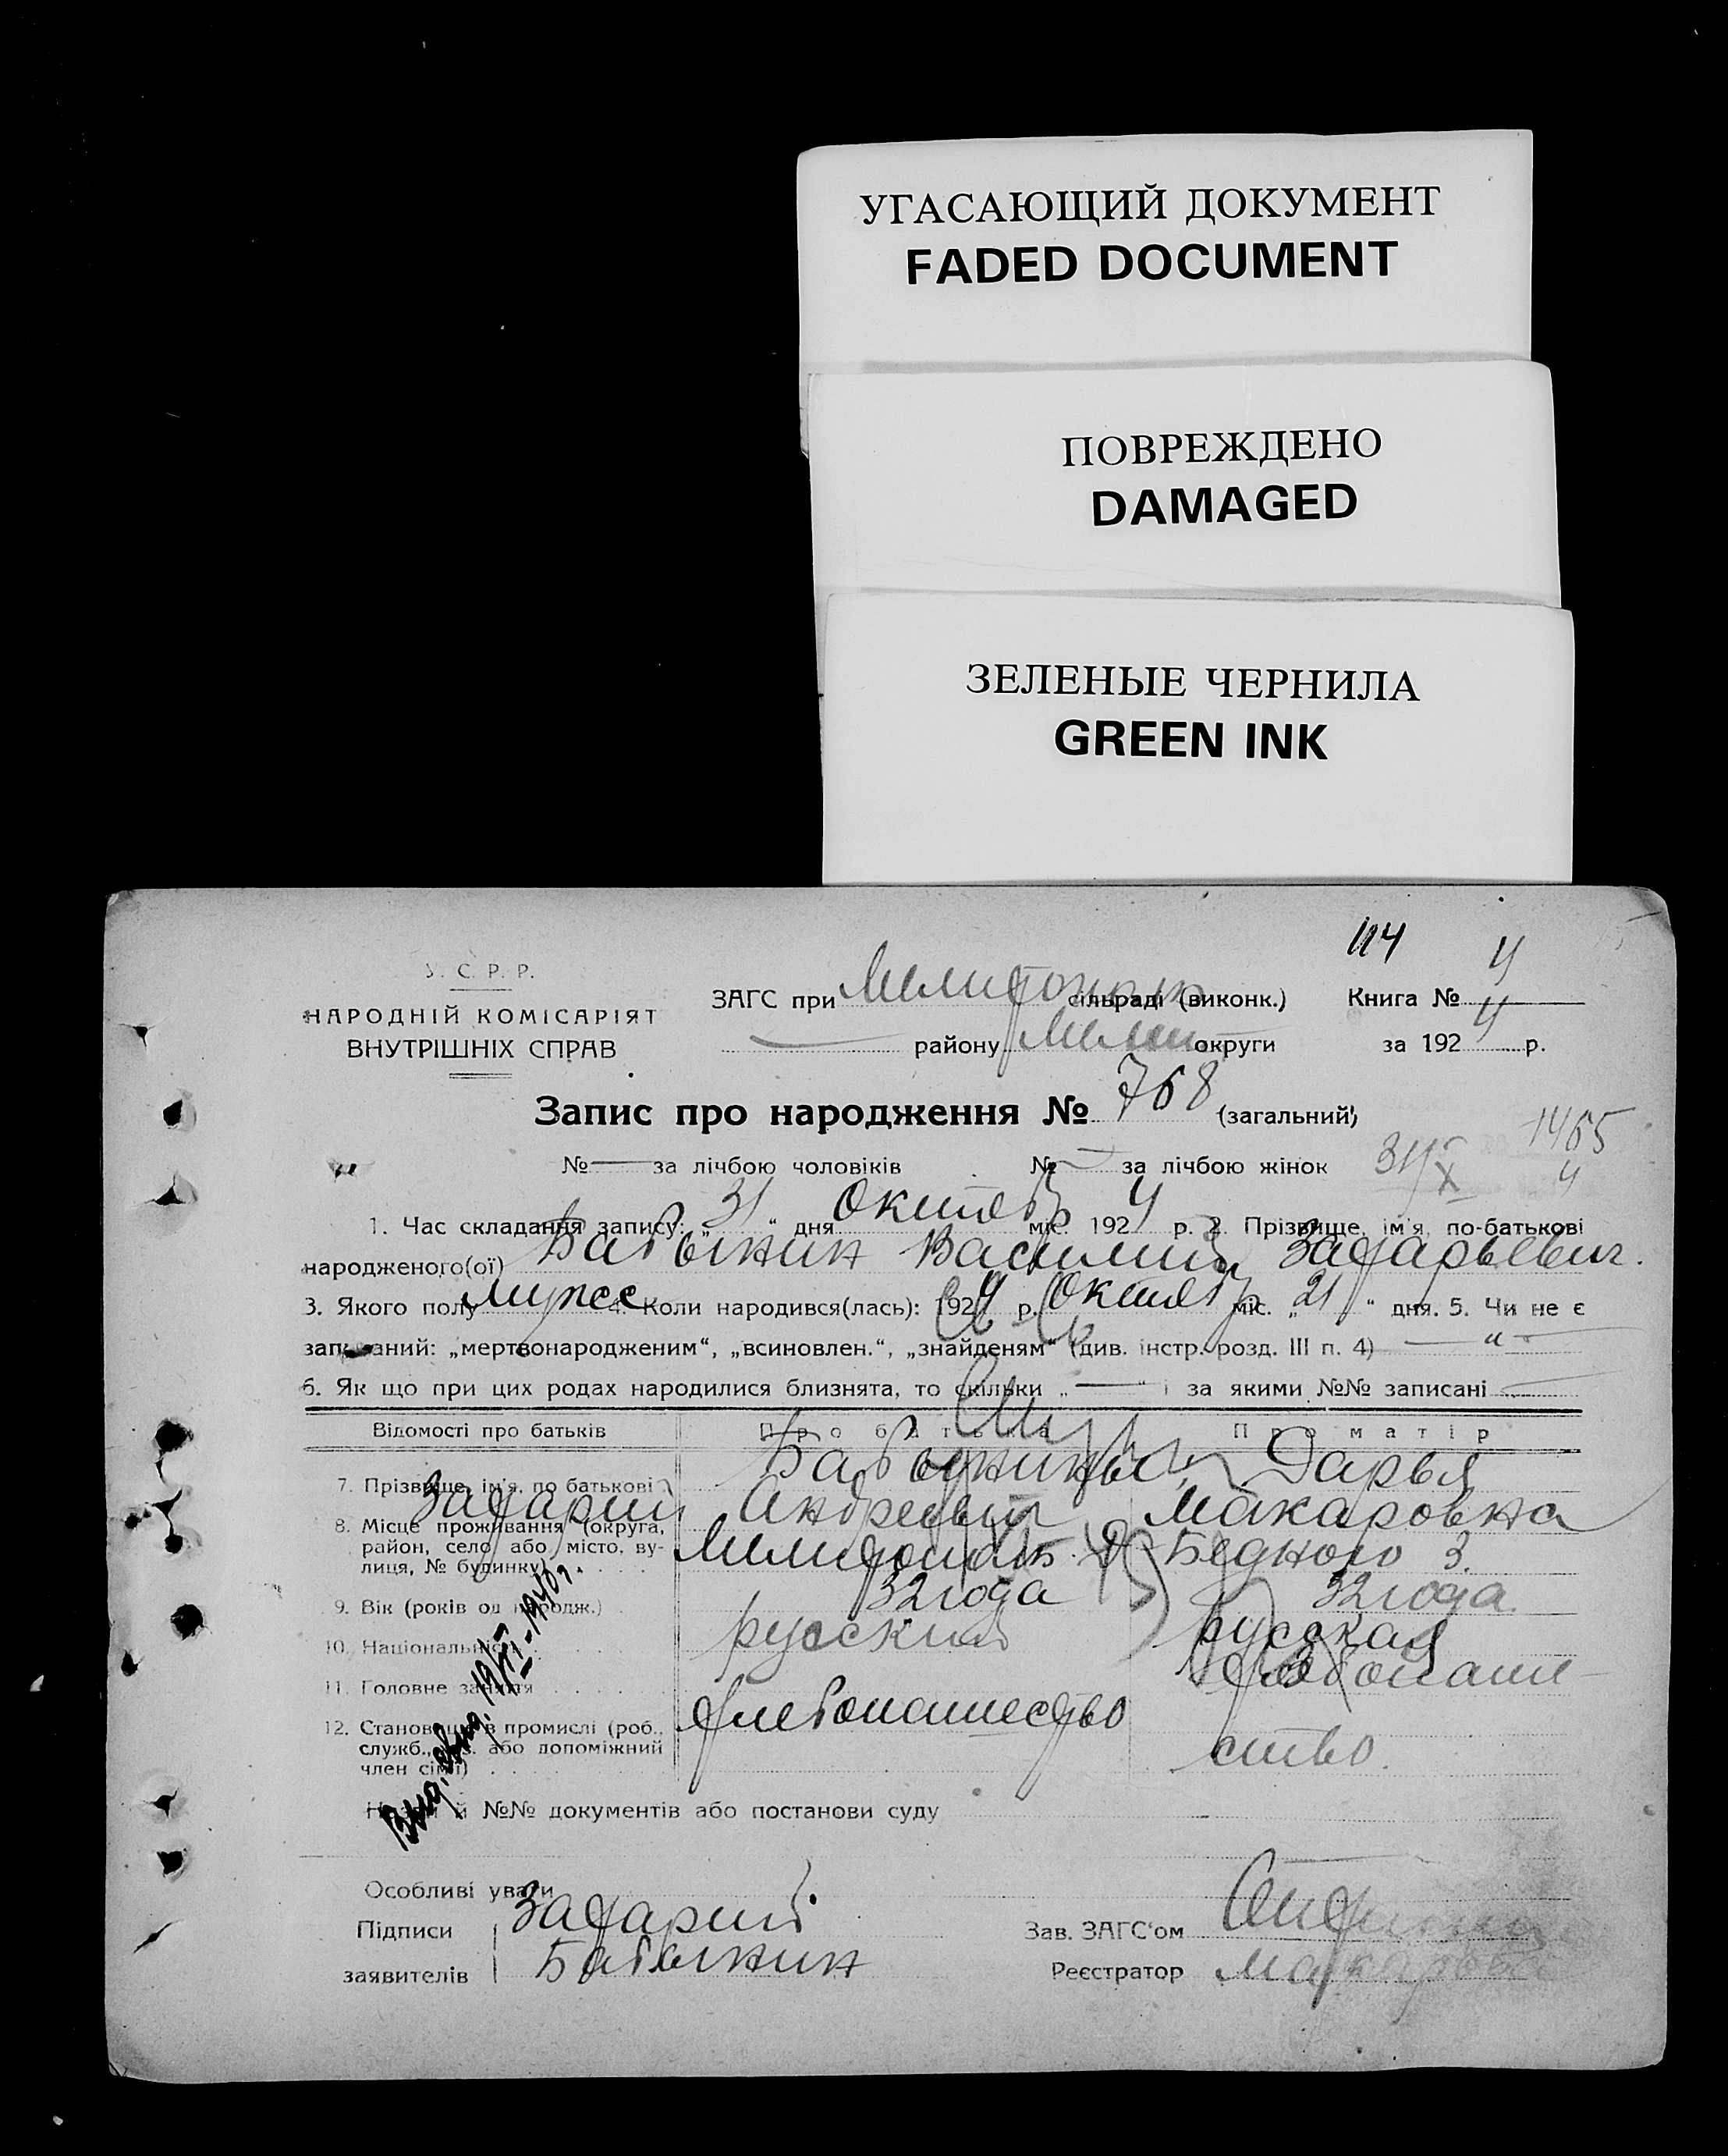 УГАСАЮЩИЙ ДОКУМЕНТ
FADED DOCUMENT
ПОВРЕЖДЕНО
DAMAGED
ЗЕЛЕНЫЕ ЧЕРНИЛА
GREEN INK
114
У. С. Р. Р.
НАРОДНІЙ КОМІСАРІЯТ
ВНУТРІШНІХ СПРАВ
ЗАГС при сільраді (виконк.) Книга № 4
району Мелит. округи за 1924 р.
Запис про народження № 768 (загальний)
1465
4
31/X
№ — за лічбою чоловіків № — за лічбою жінок
1. Час складання запису: „31“ дня Октяб міс. 1924 р. 2. Прізвище, ім'я, по-батькові
народженого(ої) Бабынин Василий Захарьевич.
3. Якого полу мужск 4. Коли народився(лась): 1924 р. Октяб міс. „21“ дня. 5. Чи не є
записаний: „мертвонародженим“, „всиновлен.“, „знайденям“ (див. інстр. розд. III п. 4) — „ —
6. Як що при цих родах народилися близнята, то скільки „—“ і за якими №№ записані —
Відомості про батьків Про батька Про матір
7. Прізвище, ім'я, по батькові Бабынины Дарья
Захарий Андреевич Макаровна
8. Місце проживання (округа, район, село або місто, вулиця, № будинку) Мелитополь Д. Бедного 3.
9. Вік (років од народж.) 32 года 32 года
10. Національність русский русская
11. Головне заняття хлебопашество хлебопаше-
ство.
12. Становище в промислі (роб., служб., або допоміжний
член сім'ї)
й №№ документів або постанови суду
Особливі уваги
Підписи Захарий Зав. ЗАГС'ом
заявителів Бабынин Реєстратор Макарова